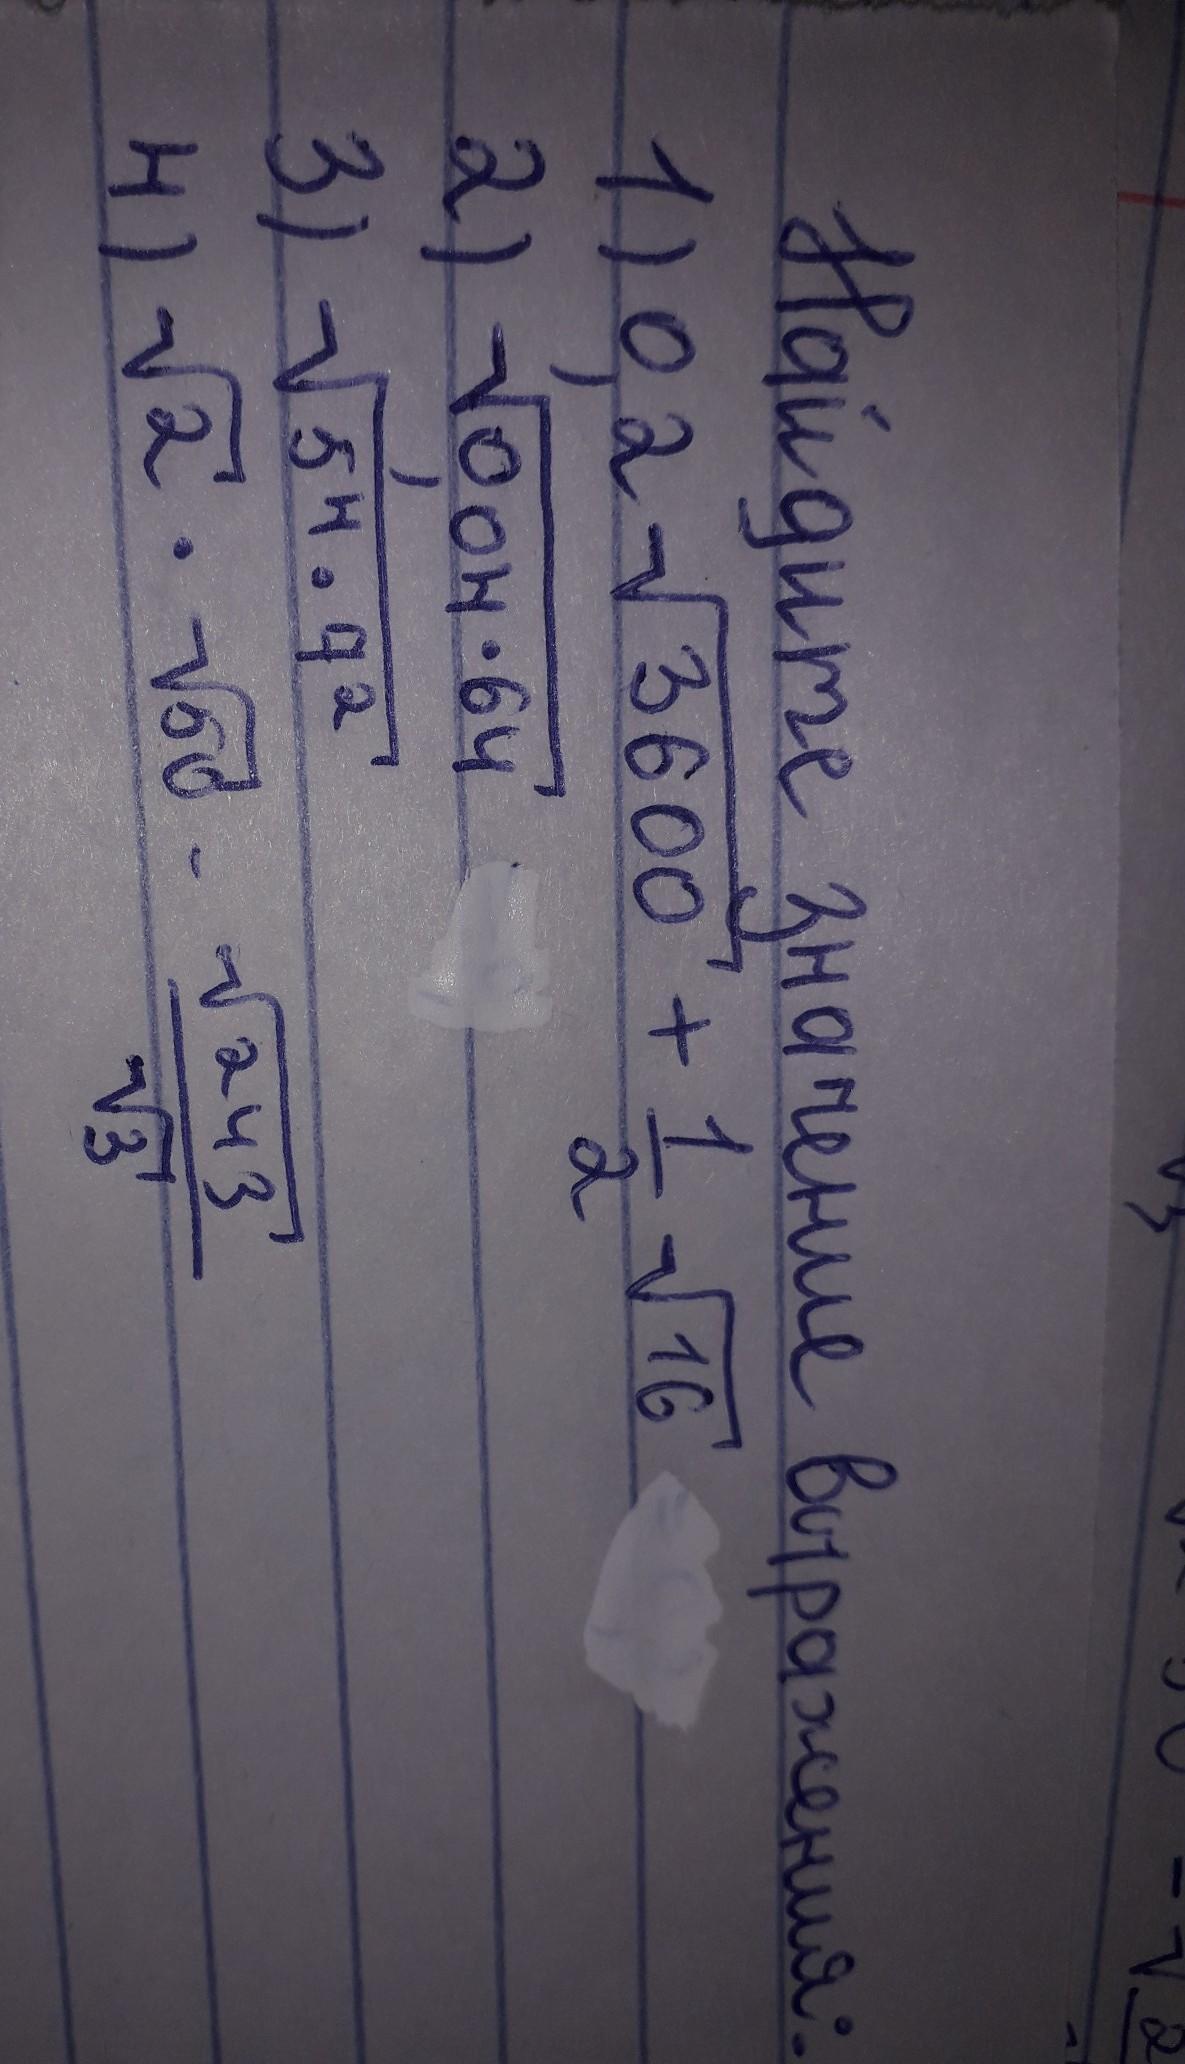 Найдите значение выражения:
1) 0,2 √3600 + 1/2 √16
2) √0,04·64
3) √5⁴·9²
4) √2 · √50 - √243/√3